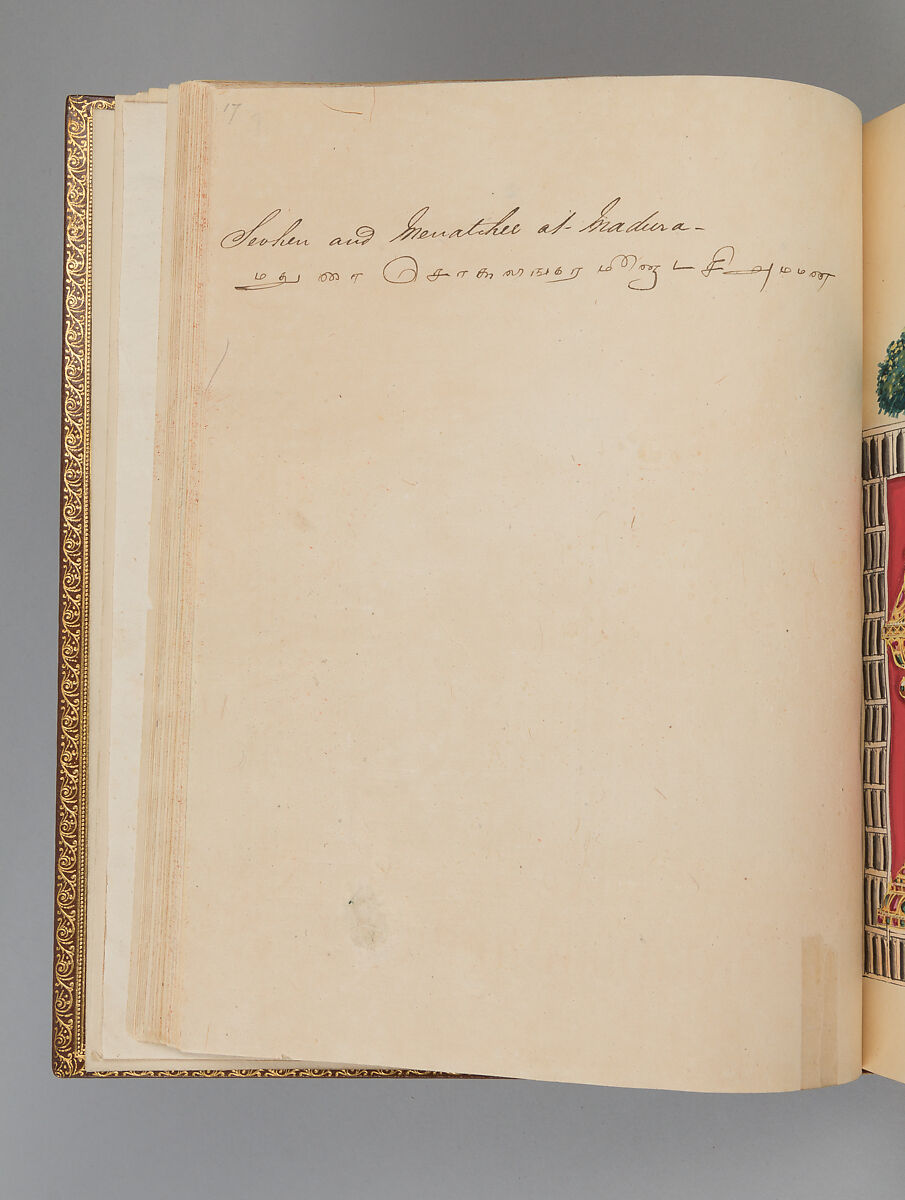 17
Sevhen and Menatchee at Madura -
மதுரை சொகலிங்கர மீனாடசிஅமமன